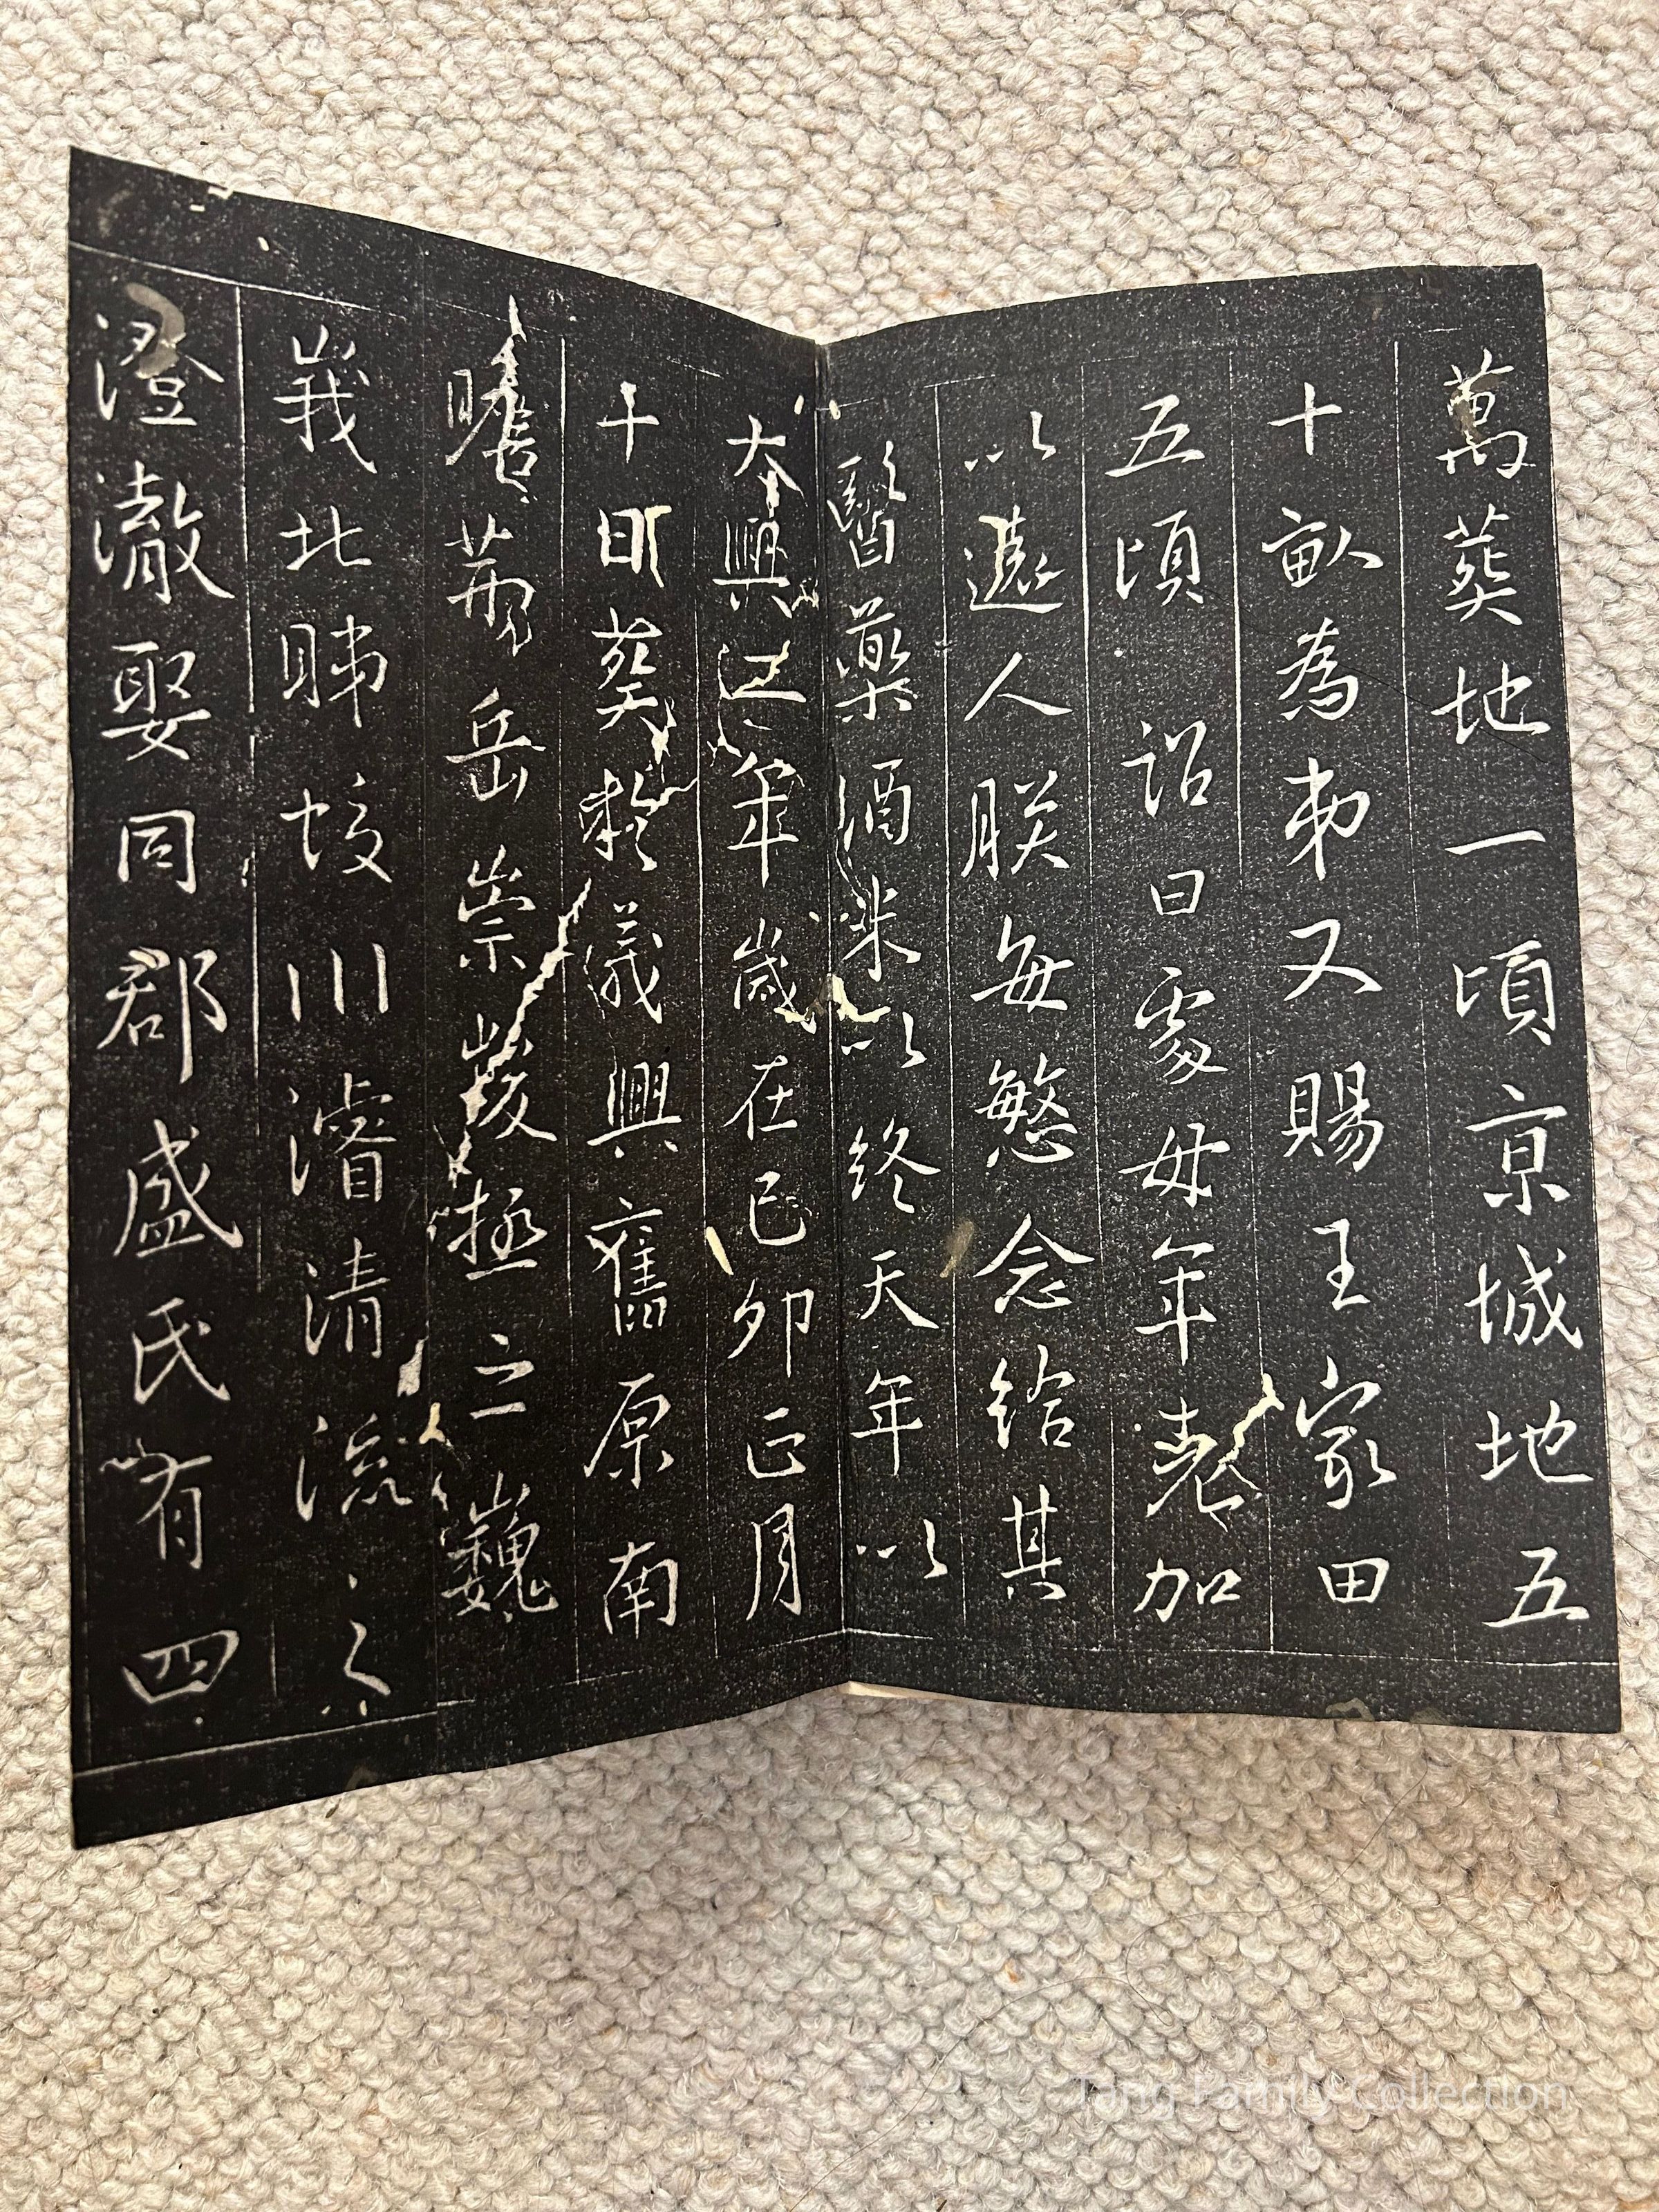 萬葬地一頃京城地五
十畝為弟又賜王家田
五頃詔曰處母年老加
以遠人朕每愍念給其
醫藥酒米以終天年以
大興近年歲在己卯正月
十日葬於義興舊原南
瞻荊岳崇峻極之巍
峩北睇蛟川濬清流之
澄澈娶同郡盛氏有四
Tang Family Collection